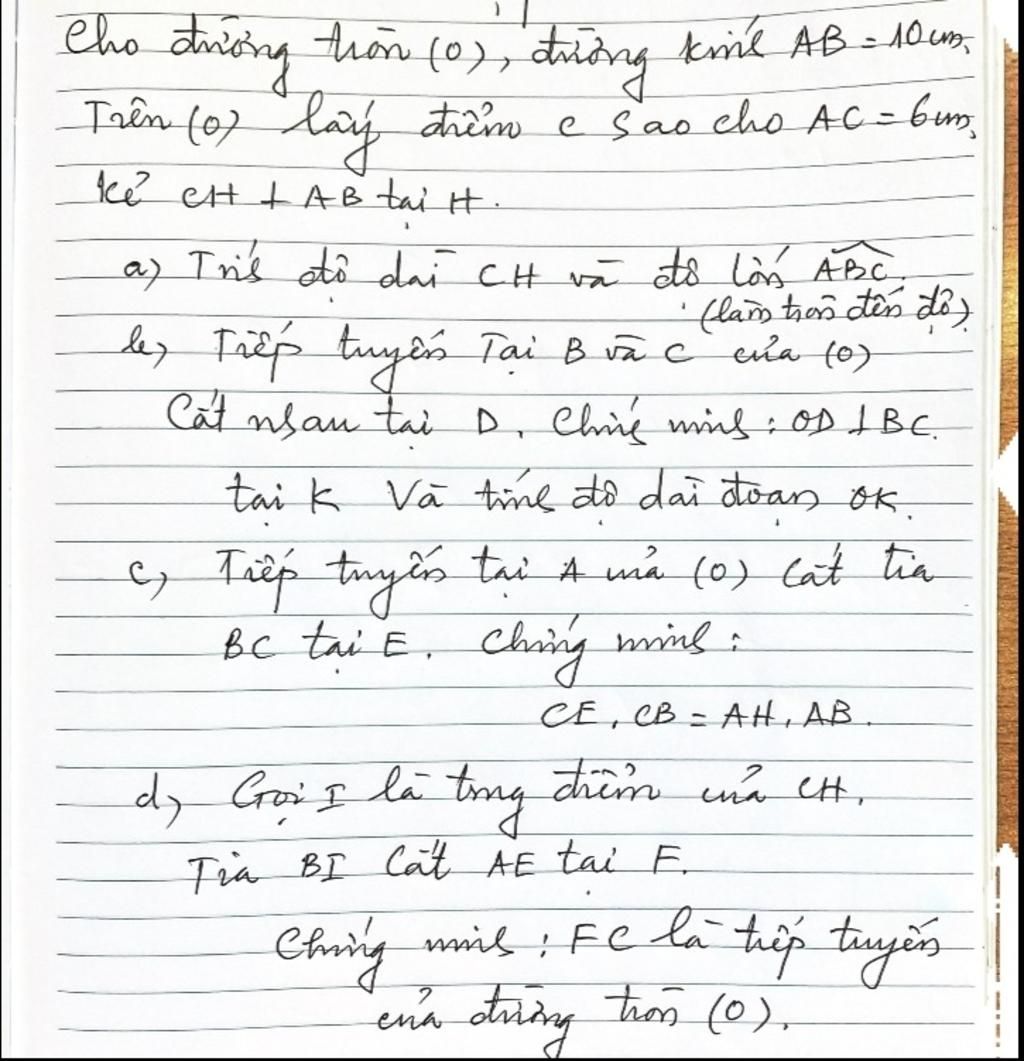 Cho đường tròn (O), đường kính AB = 10cm,
Trên (O) lấy điểm C sao cho AC = 6cm,
kẻ CH ⊥ AB tại H.
a) Tính độ dài CH và độ lớn \widehat{ABC}.
(làm tròn đến độ)
b) Tiếp tuyến Tại B và C của (O)
Cắt nhau tại D. Chứng minh : OD ⊥ BC.
tại K Và tính độ dài đoạn OK.
c) Tiếp tuyến tại A của (O) Cắt tia
BC tại E. Chứng minh :
CE . CB = AH . AB.
d) Gọi I là trung điểm của CH,
Tia BI Cắt AE tại F.
Chứng minh : FC là tiếp tuyến
của đường tròn (O).